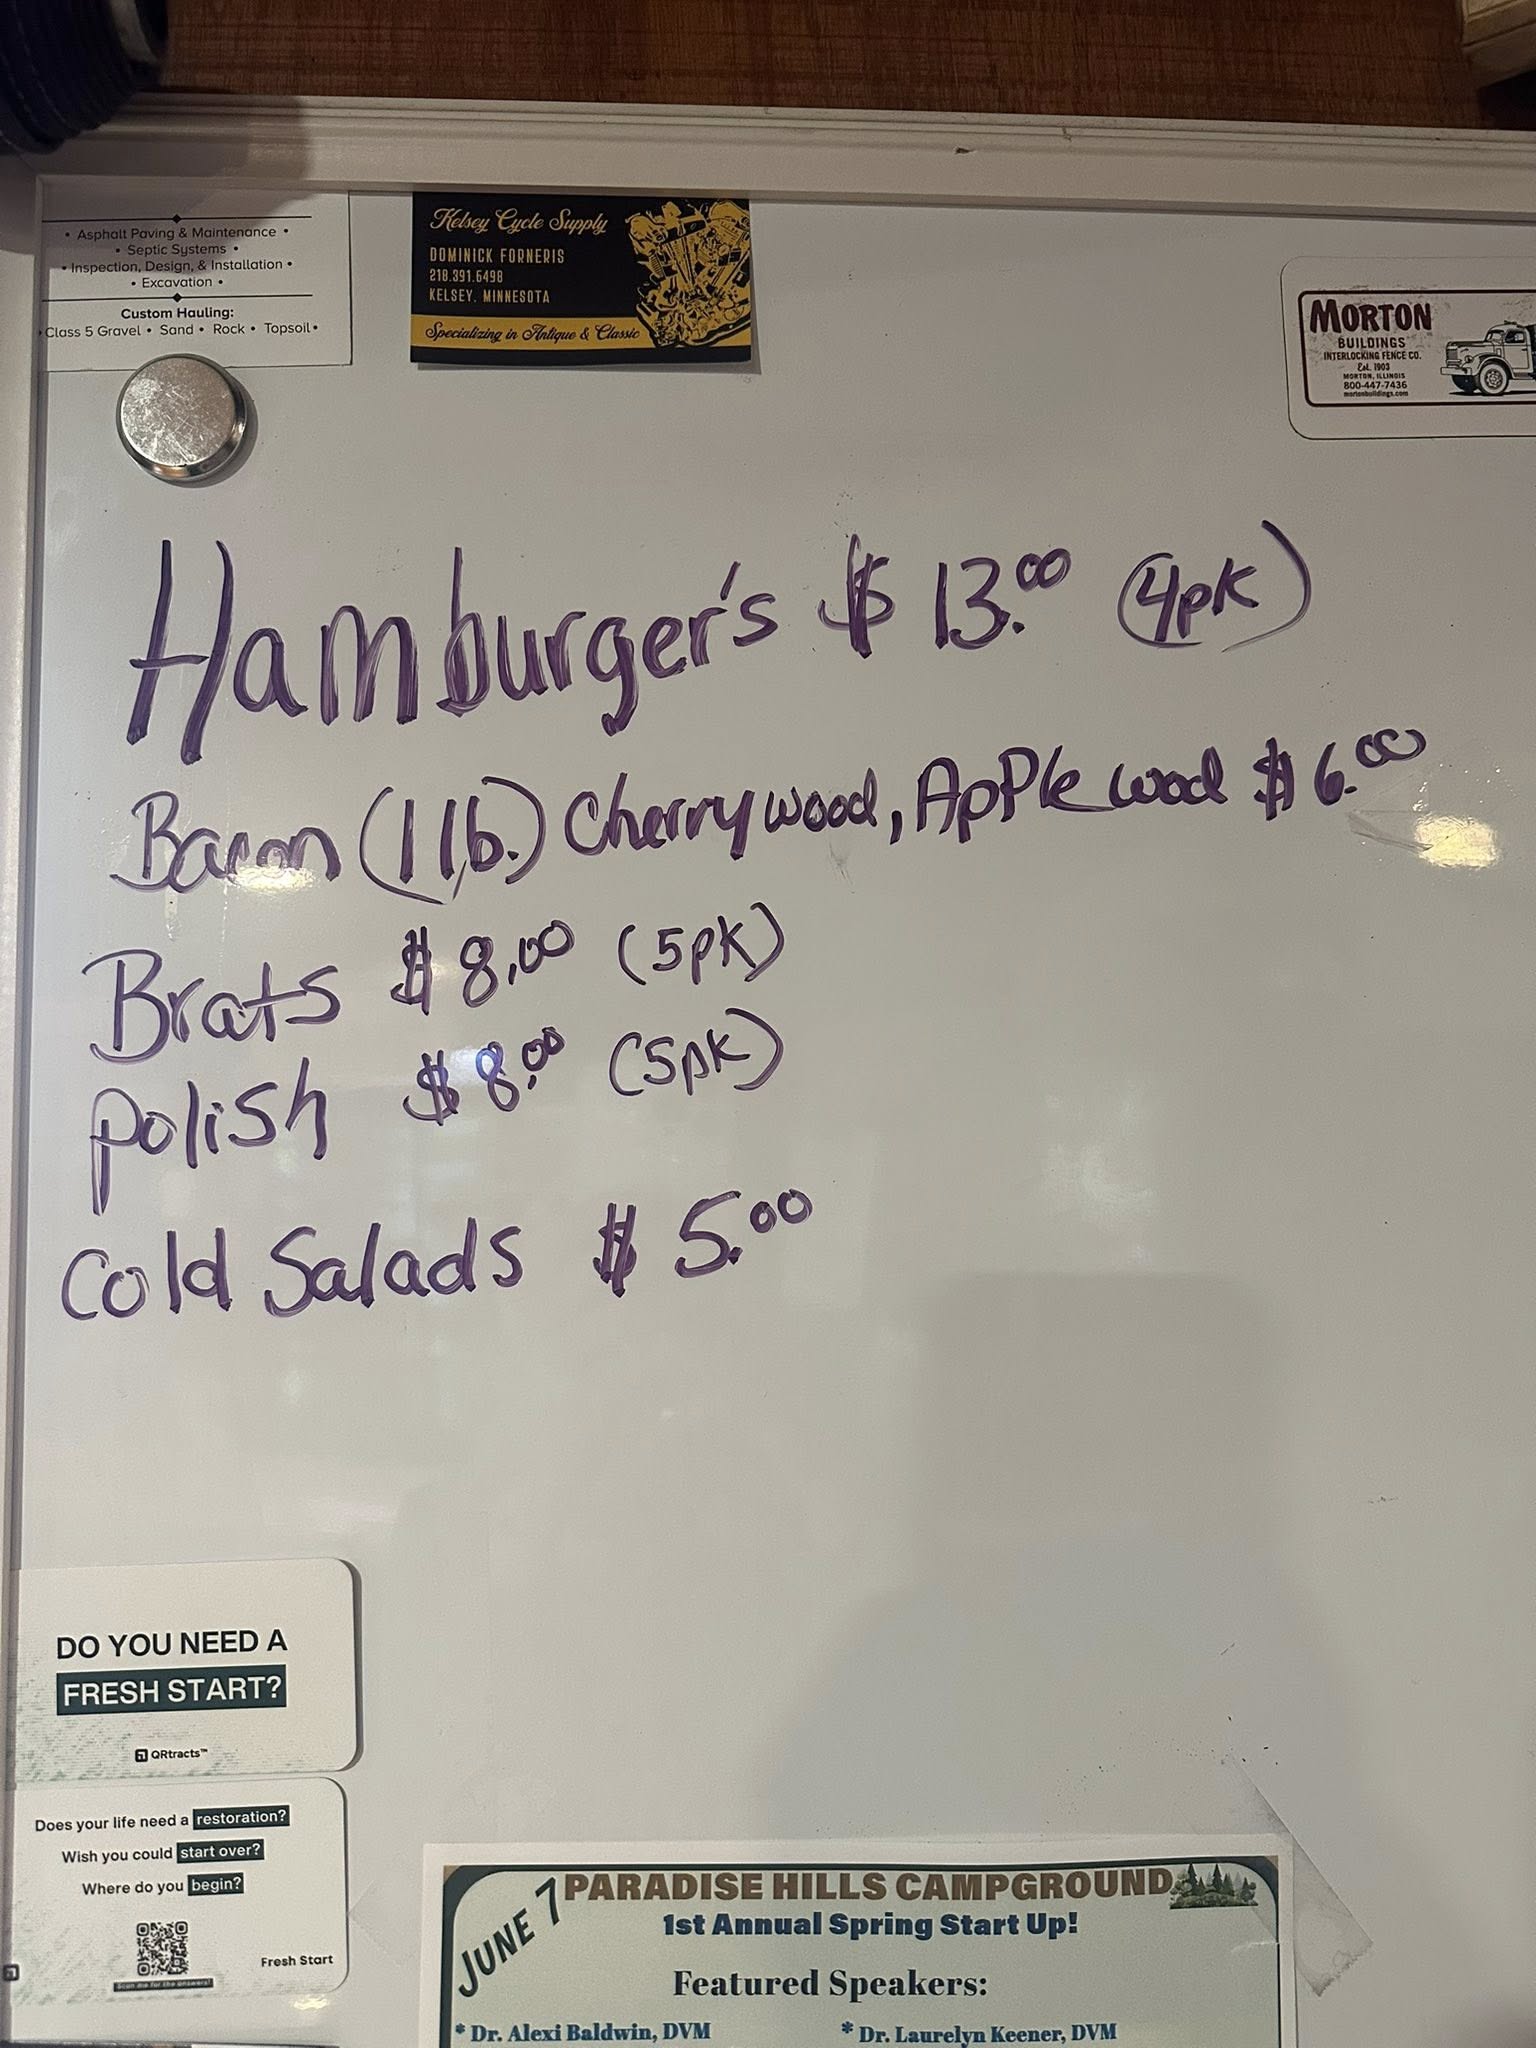 • Asphalt Paving & Maintenance •
• Septic Systems •
• Inspection, Design, & Installation •
• Excavation •
Custom Hauling:
• Class 5 Gravel • Sand • Rock • Topsoil •
Kelsey Cycle Supply
DOMINICK FORNERIS
218.391.6498
KELSEY, MINNESOTA
Specializing in Antique & Classic
MORTON
BUILDINGS
INTERLOCKING FENCE CO.
Est. 1903
MORTON, ILLINOIS
800-447-7436
mortonbuildings.com
Hamburger's $13.00 (4pk)
Bacon (1 lb.) Cherrywood, Apple wood $6.00
Brats $8.00 (5pk)
Polish $8.00 (5pk)
Cold Salads $5.00
DO YOU NEED A
FRESH START?
QRtracts™
Does your life need a restoration?
Wish you could start over?
Where do you begin?
Scan me for the answers!
Fresh Start
JUNE 7
PARADISE HILLS CAMPGROUND
1st Annual Spring Start Up!
Featured Speakers:
* Dr. Alexi Baldwin, DVM
* Dr. Laurelyn Keener, DVM